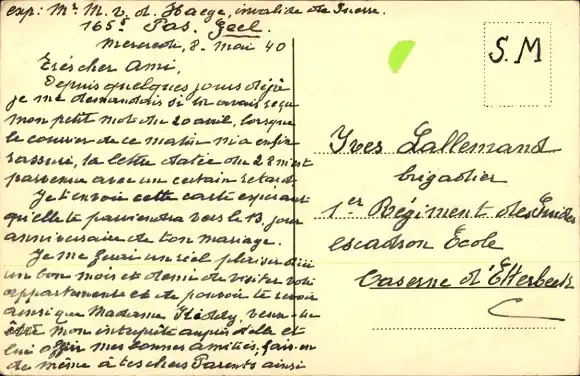 exp: Mr M. v. d. Haege, invalide de Guerre.
165e Pas. Geel.
Mercredi, 8. Mai 40
Très cher Ami,
Depuis quelques jours déjà
je me demandais si tu avais reçu
mon petit mot du 20 avril, lorsque
le courrier de ce matin m'a enfin
rassuré, ta lettre datée du 28 m'est
parvenue avec un certain retard.
Je t'envoie cette carte espérant
qu'elle te parviendra vers le 13, jour
anniversaire de ton mariage.
Je me ferai un réel plaisir d'ici
un bon mois et demi de visiter votre
appartement et de pouvoir te revoir
ainsi que Madame. veux-tu
être mon interprète auprès d'elle et
lui offrir mes bonnes amitiés, fais-en
de même à tes chers Parents ainsi
S.M
Yves Lallemand
brigadier
1er Régiment des Guides
escadron École
Caserne d'Etterbeek